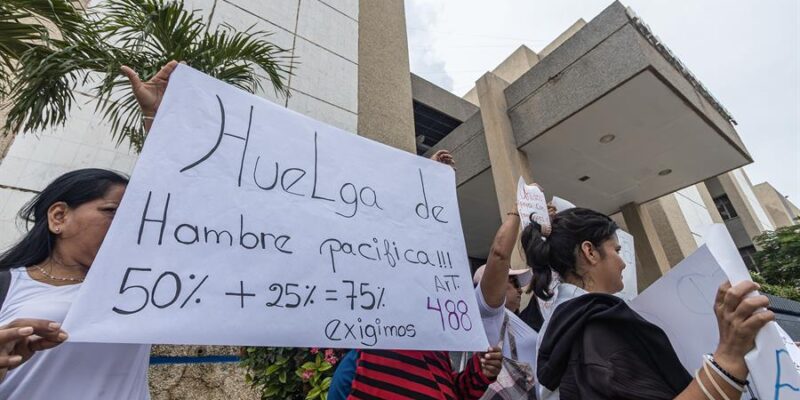 HueLga de
Hambre pacífica!!!
50% + 25% = 75%
ArT. 488
exigimos